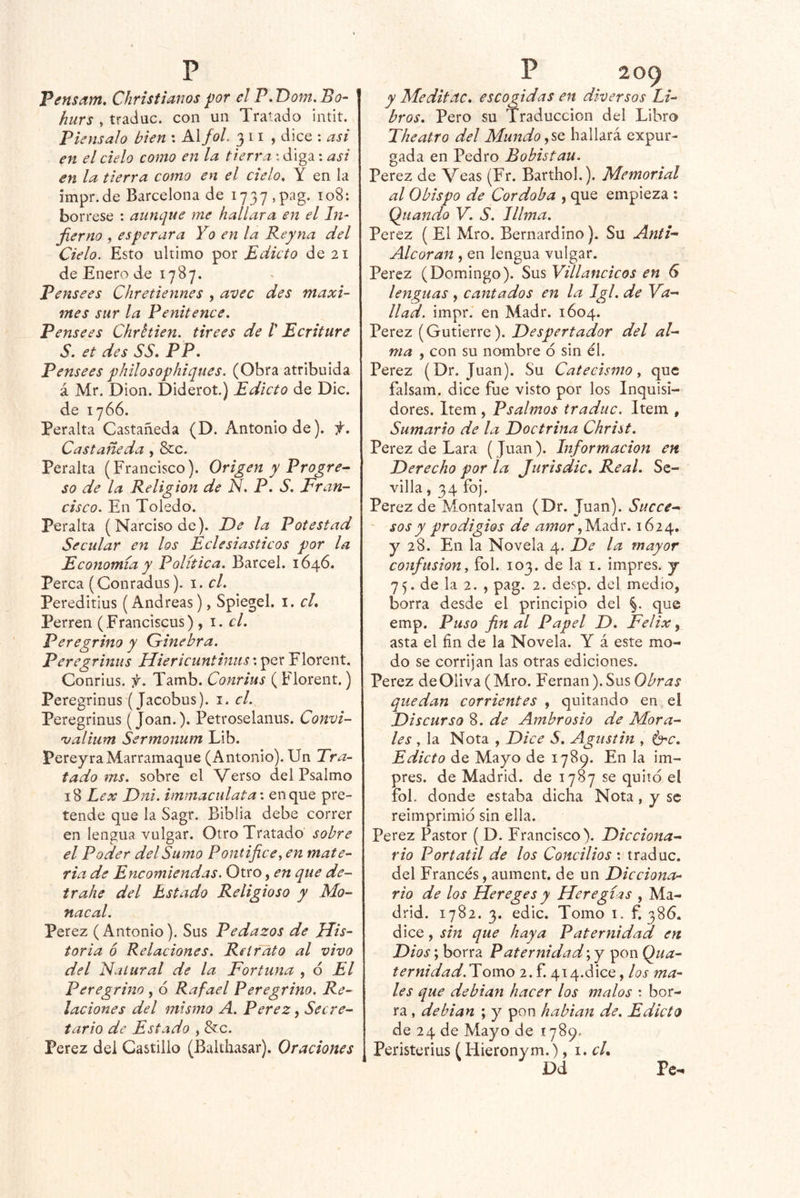 P
Pensam. Christianos por el P. Dom. Bo-
hurs , traduc. con un Tratado intit.
Piensalo bien : Al fol. 311 , dice : asi
en el cielo como en la tierra : diga : asi
en la tierra como en el cielo. Y en la
impr. de Barcelona de 1737, pag. 108:
borrese : aunque me hallara en el In-
fierno , esperara Yo en la Reyna del
Cielo. Esto ultimo por Edicto de 21
de Enero de 1787.
Pensees Chretiennes , avec des maxi-
mes sur la Penitence.
Pensees Chrêtien. tirees de l' Ecriture
S. et des SS. PP.
Pensees philosophiques. (Obra atribuida
á Mr. Dion. Diderot.) Edicto de Dic.
de 1766.
Peralta Castañeda (D. Antonio de). ℣.
Castañeda , &c.
Peralta (Francisco). Origen y Progre-
so de la Religion de N. P. S. Fran-
cisco. En Toledo.
Peralta (Narciso de). De la Potestad
Secular en los Eclesiasticos por la
Economía y Política. Barcel. 1646.
Perca (Conradus). 1. cl.
Pereditius (Andreas), Spiegel. 1. cl.
Perren (Franciscus), 1. cl.
Peregrino y Ginebra.
Peregrinus Hiericuntinus : per Florent.
Conrius. ℣. Tamb. Conrius (Florent.)
Peregrinus (Jacobus). 1. cl.
Peregrinus (Joan.). Petroselanus. Convi-
valium Sermonum Lib.
Pereyra Marramaque (Antonio). Un Tra-
tado ms. sobre el Verso del Psalmo
18 Lex Dni. immaculata : en que pre-
tende que la Sagr. Biblia debe correr
en lengua vulgar. Otro Tratado sobre
el Poder del Sumo Pontifice, en mate-
ria de Encomiendas. Otro, en que de-
trahe del Estado Religioso y Mo-
nacal.
Perez (Antonio). Sus Pedazos de His-
toria ó Relaciones. Retrato al vivo
del Natural de la Fortuna , ó El
Peregrino , ó Rafael Peregrino. Re-
laciones del mismo A. Perez, Secre-
tario de Estado , &c.
Perez del Castillo (Balthasar). Oraciones
P 209
y Meditac. escogidas en diversos Li-
bros. Pero su Traduccion del Libro
Theatro del Mundo, se hallará expur-
gada en Pedro Bobistau.
Perez de Veas (Fr. Barthol.). Memorial
al Obispo de Cordoba , que empieza :
Quando V. S. Illma.
Perez (El Mro. Bernardino). Su Anti-
Alcoran , en lengua vulgar.
Perez (Domingo). Sus Villancicos en 6
lenguas , cantados en la Igl. de Va-
llad. impr. en Madr. 1604.
Perez (Gutierre). Despertador del al-
ma , con su nombre ó sin él.
Perez (Dr. Juan). Su Catecismo, que
falsam. dice fue visto por los Inquisi-
dores. Item , Psalmos traduc. Item ,
Sumario de la Doctrina Christ.
Perez de Lara (Juan). Informacion en
Derecho por la Jurisdic. Real. Se-
villa, 34 foj.
Perez de Montalvan (Dr. Juan). Succe-
sos y prodigios de amor, Madr. 1624.
y 28. En la Novela 4. De la mayor
confusion, fol. 103. de la 1. impres. y
75. de la 2. , pag. 2. desp. del medio,
borra desde el principio del §. que
emp. Puso fin al Papel D. Felix,
asta el fin de la Novela. Y á este mo-
do se corrijan las otras ediciones.
Perez de Oliva (Mro. Fernan). Sus Obras
quedan corrientes , quitando en el
Discurso 8. de Ambrosio de Mora-
les , la Nota , Dice S. Agustin , &c.
Edicto de Mayo de 1789. En la im-
pres. de Madrid. de 1787 se quitó el
fol. donde estaba dicha Nota, y se
reimprimió sin ella.
Perez Pastor (D. Francisco). Dicciona-
rio Portatil de los Concilios : traduc.
del Francés, aument. de un Dicciona-
rio de los Hereges y Heregías , Ma-
drid. 1782. 3. edic. Tomo 1. f. 386.
dice, sin que haya Paternidad en
Dios; borra Paternidad; y pon Qua-
ternidad. Tomo 2. f. 414. dice, los ma-
les que debian hacer los malos : bor-
ra, debian ; y pon habian de. Edicto
de 24 de Mayo de 1789.
Peristerius (Hieronym.), 1. cl.
Dd Pe-